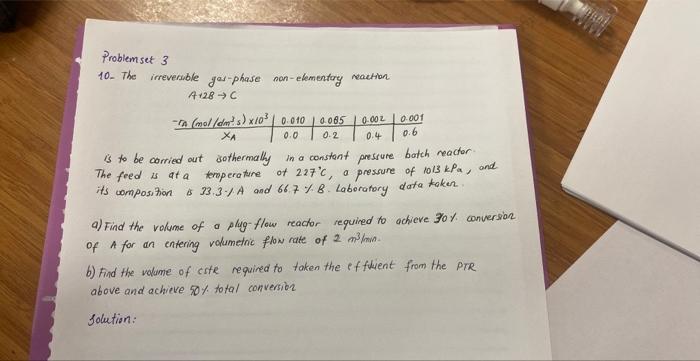 Problem set 3
10- The irreversible gas-phase non-elementary reaction
A+2B → C
-rA (mol/dm³.s) x10³ | 0.010 | 0.005 | 0.002 | 0.001
XA | 0.0 | 0.2 | 0.4 | 0.6
is to be carried out isothermally in a constant pressure batch reactor.
The feed is at a temperature of 227°C, a pressure of 1013 kPa, and
its composition is 33.3% A and 66.7 % B. Laboratory data taken.
a) Find the volume of a plug-flow reactor required to achieve 30% conversion
of A for an entering volumetric flow rate of 2 m³/min.
b) Find the volume of cstr required to taken the effluent from the PTR
above and achieve 50% total conversion
Solution: